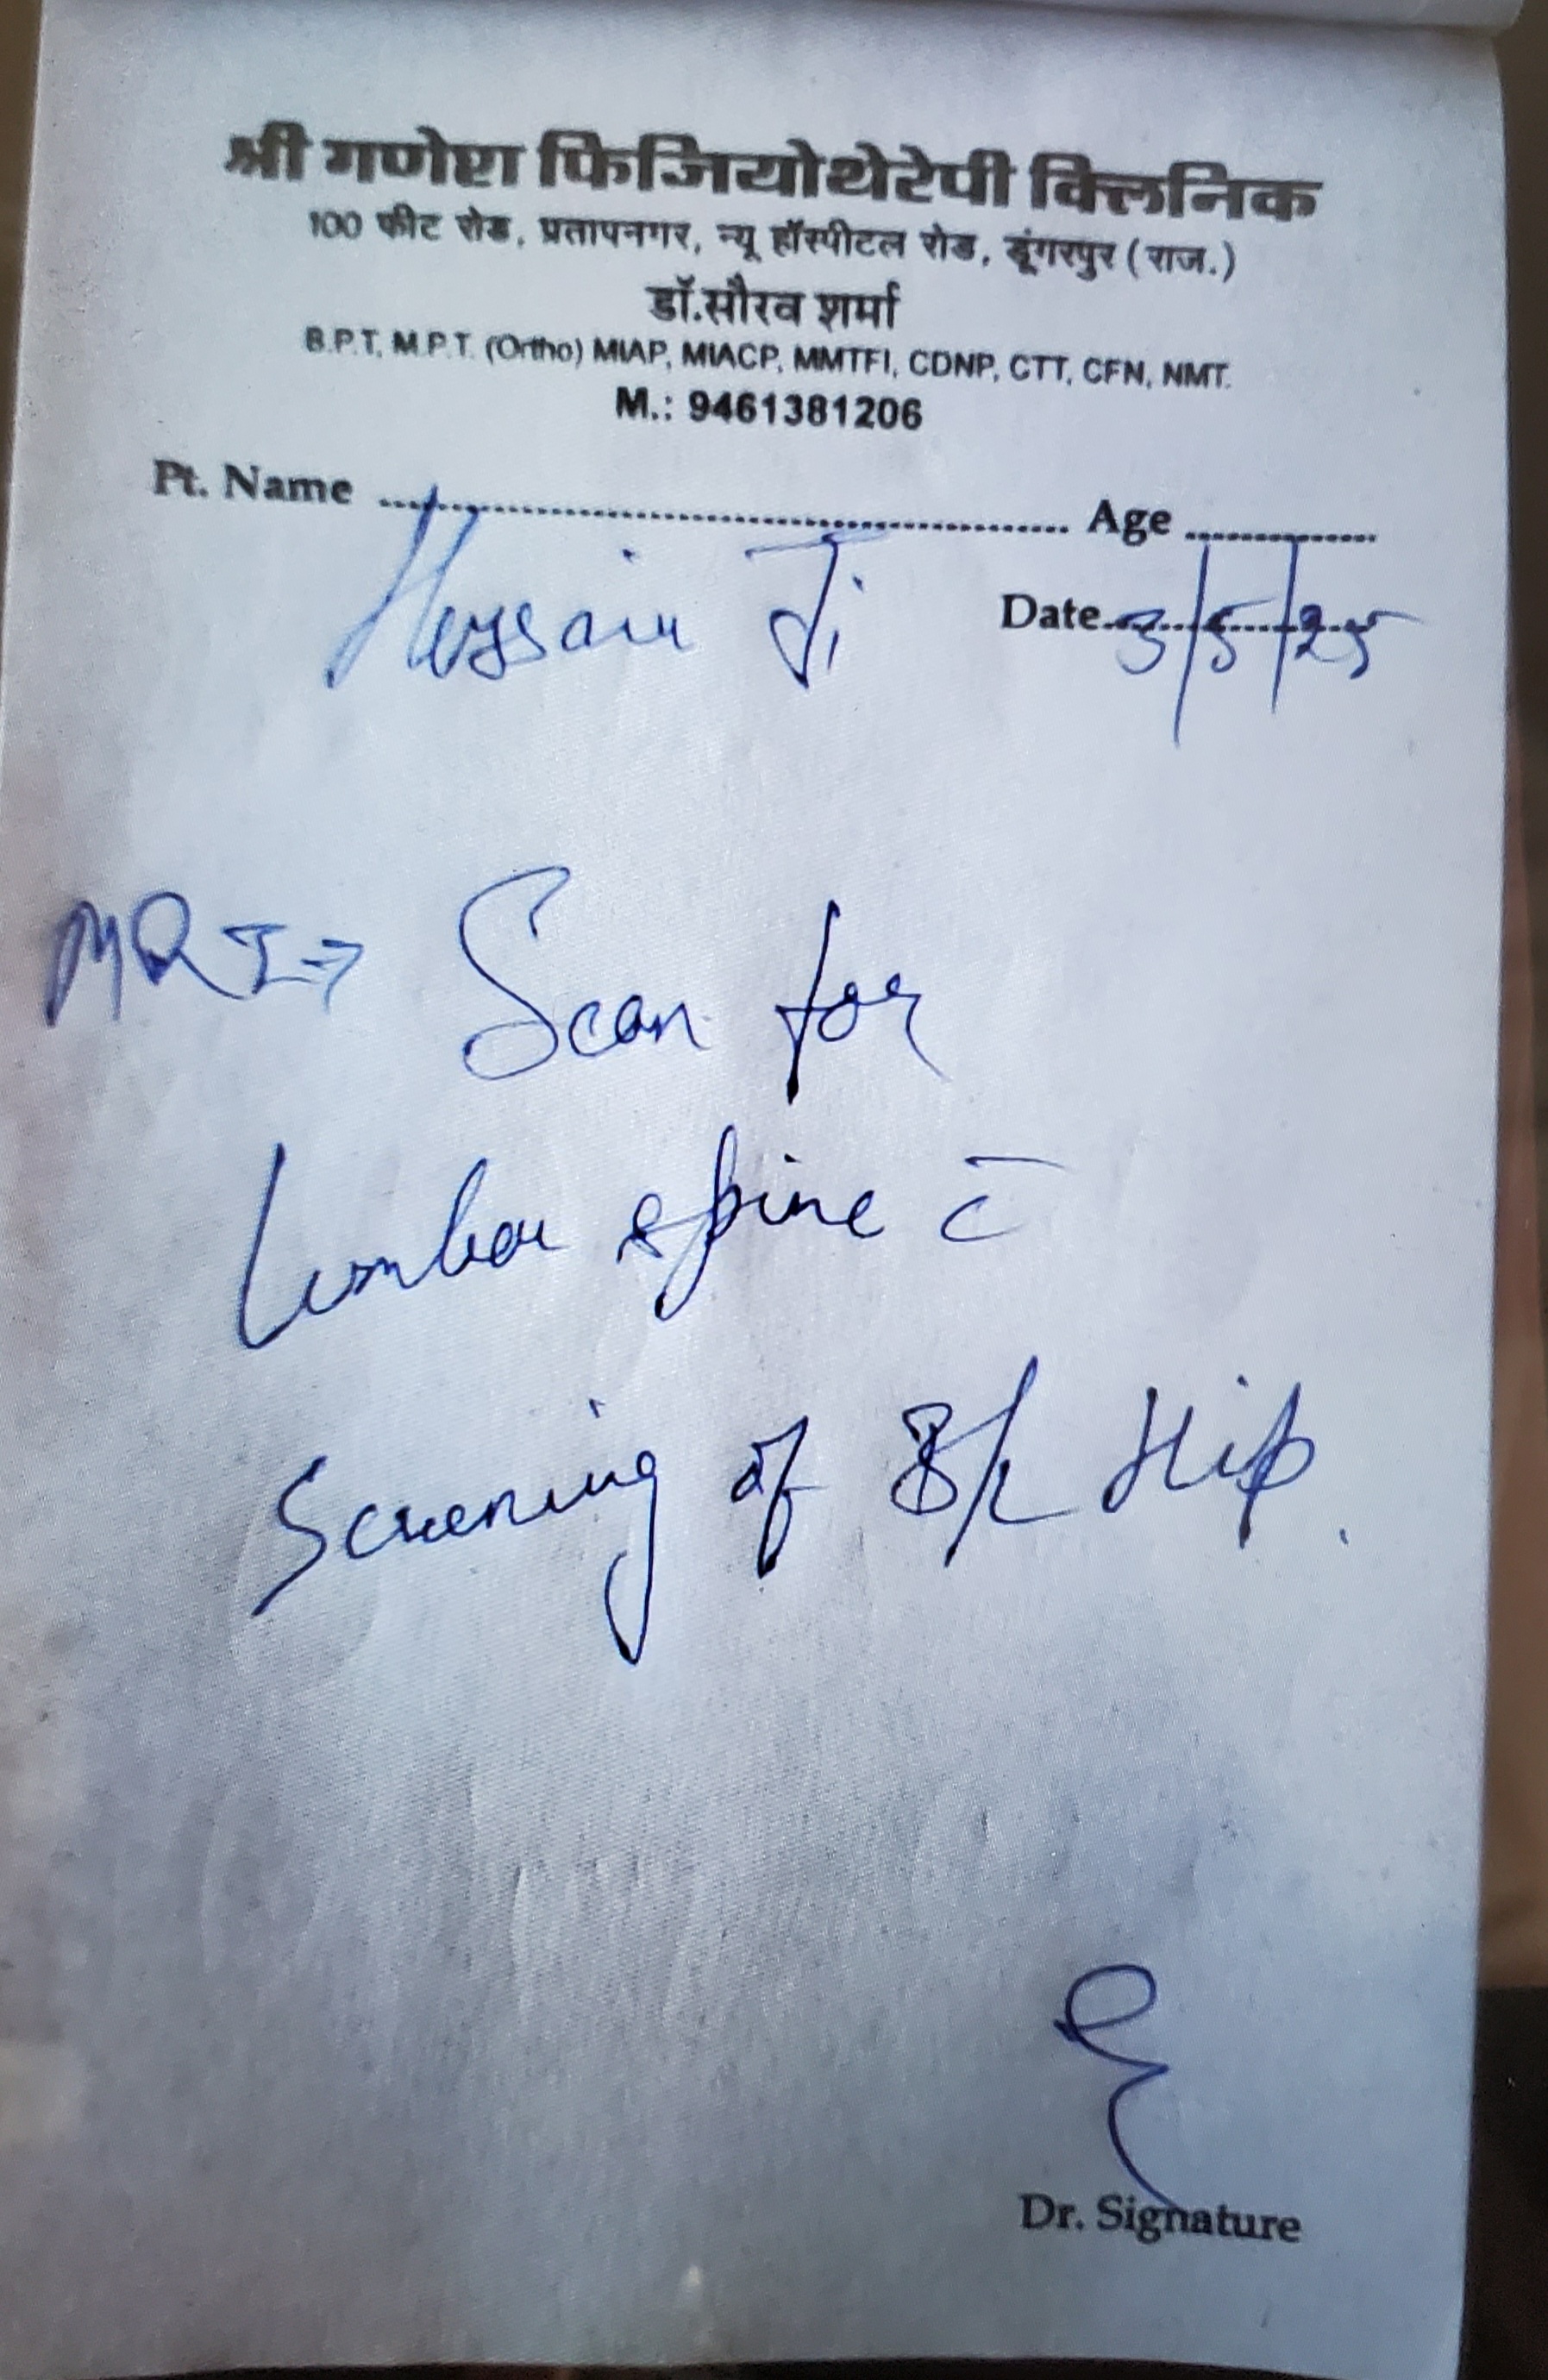 श्री गणेश फिजियोथेरेपी क्लिनिक
100 फीट रोड, प्रतापनगर, न्यू हॉस्पीटल रोड, डूंगरपुर (राज.)
डॉ.सौरव शर्मा
B.P.T, M.P.T. (Ortho) MIAP, MIACP, MMTFI, CDNP, CTT, CFN, NMT.
M.: 9461381206
Pt. Name Age
Hussain Ji Date 3/5/25
MRI → Scan for
Lumbar spine c̄
Screening of B/L Hip.
Dr. Signature